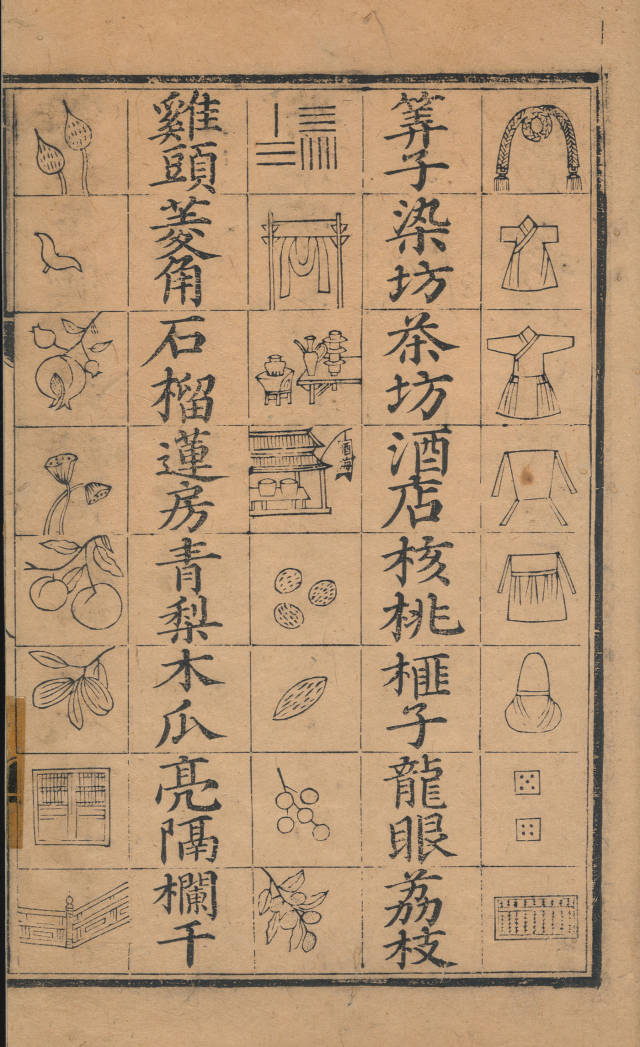 筭子染坊茶坊酒店核桃榧子龍眼荔枝
雞頭菱角石榴蓮房青梨木瓜亮隔欄干